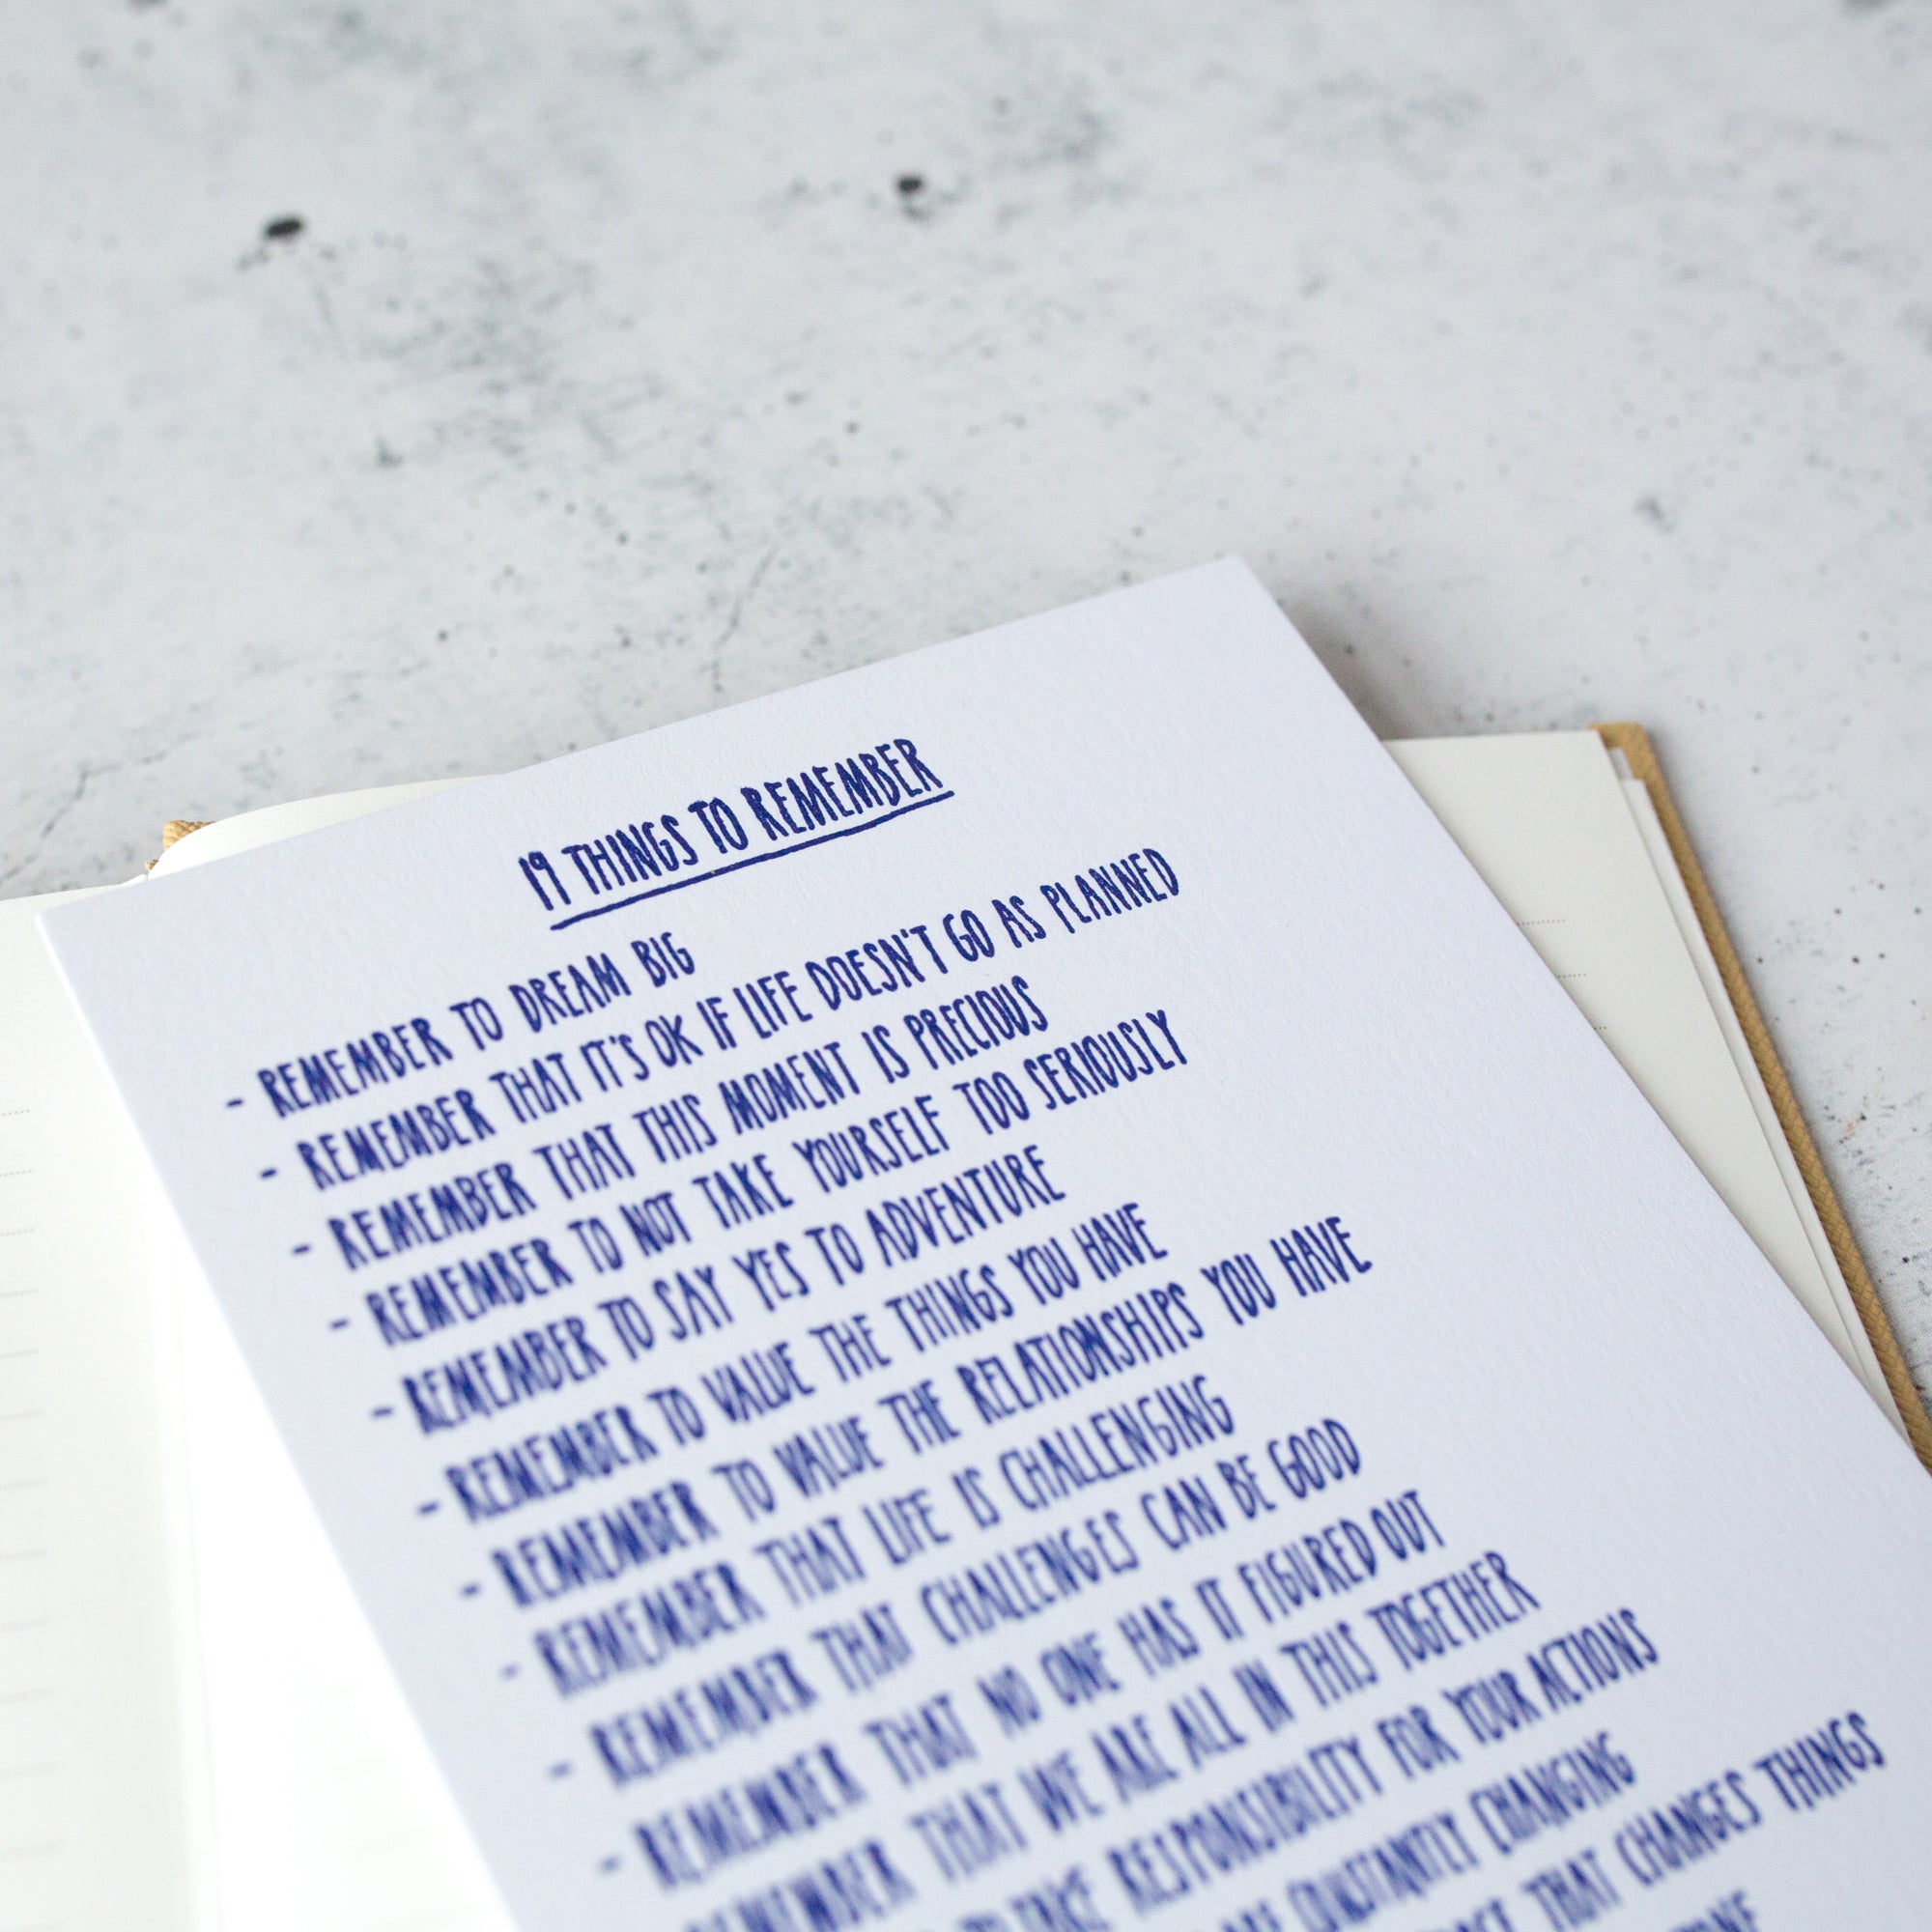 19 THINGS TO REMEMBER
- REMEMBER TO DREAM BIG
- REMEMBER THAT IT'S OK IF LIFE DOESN'T GO AS PLANNED
- REMEMBER THAT THIS MOMENT IS PRECIOUS
- REMEMBER TO NOT TAKE YOURSELF TOO SERIOUSLY
- REMEMBER TO SAY YES TO ADVENTURE
- REMEMBER TO VALUE THE THINGS YOU HAVE
- REMEMBER TO VALUE THE RELATIONSHIPS YOU HAVE
- REMEMBER THAT LIFE IS CHALLENGING
- REMEMBER THAT CHALLENGES CAN BE GOOD
- REMEMBER THAT NO ONE HAS IT FIGURED OUT
REMEMBER THAT WE ARE ALL IN THIS TOGETHER
TO TAKE RESPONSIBILITY FOR YOUR ACTIONS
ARE CONSTANTLY CHANGING
THAT CHANGES THINGS